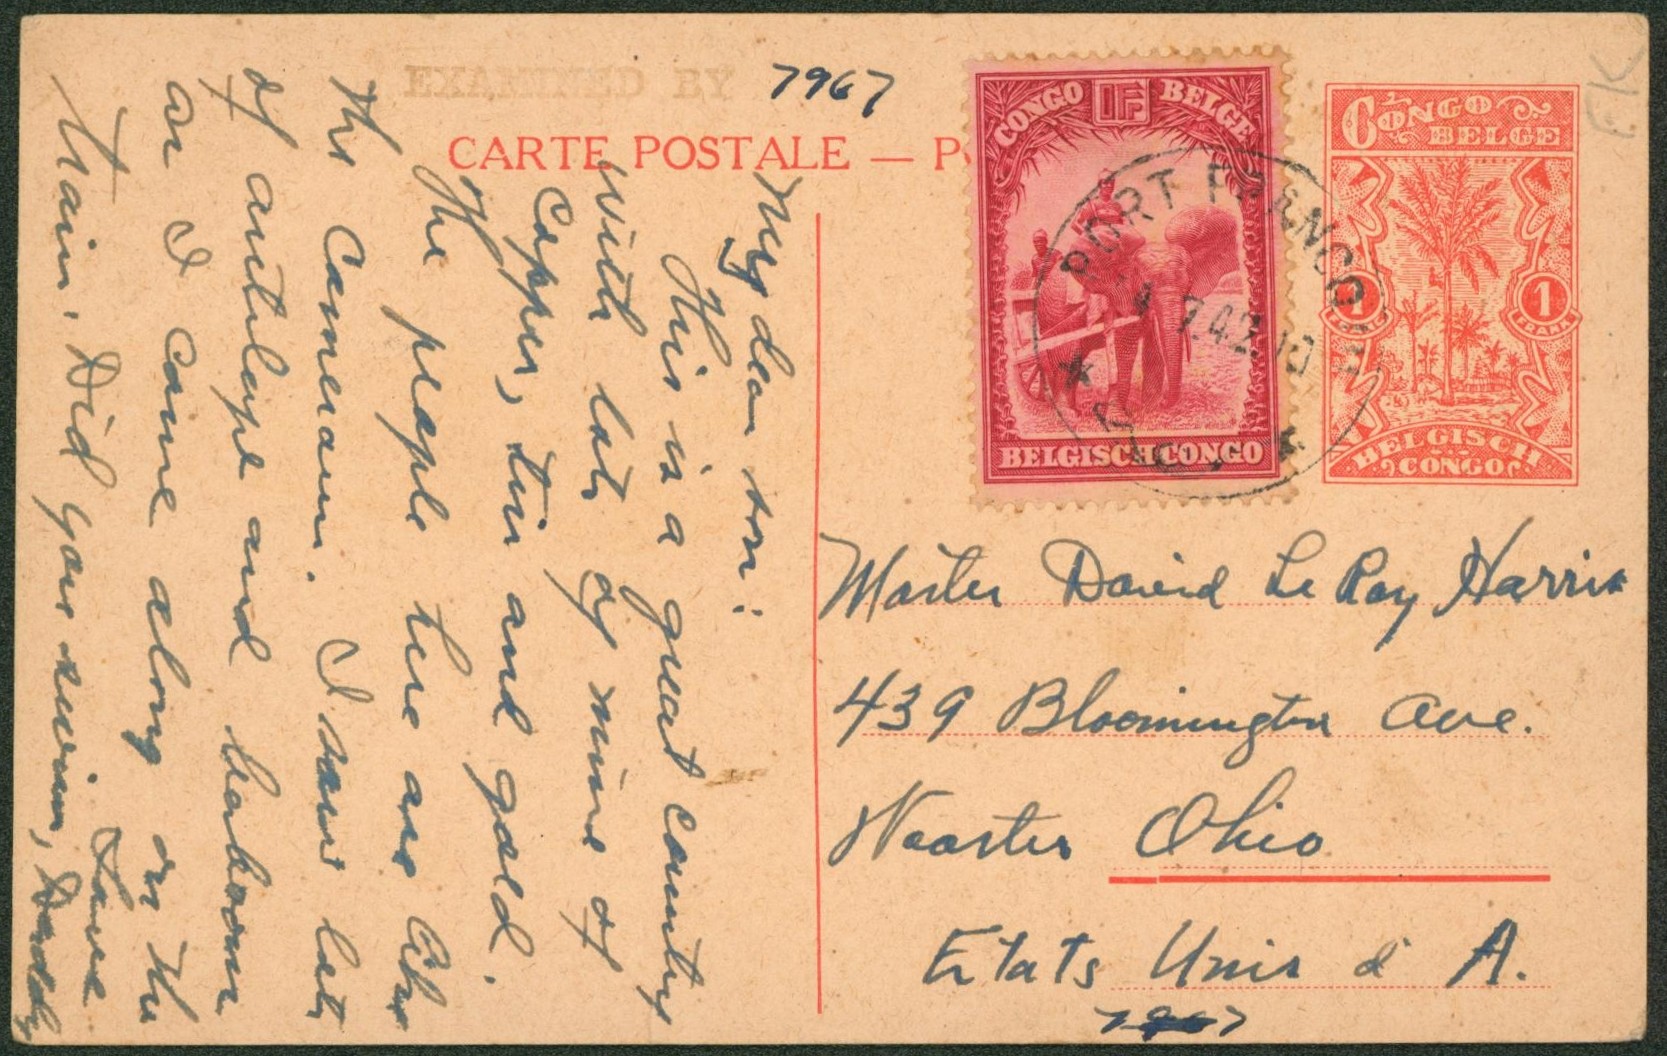 EXAMINED BY 7967
CARTE POSTALE — P
CONGO 1F BELGE
BELGISCH CONGO
PORT FRANCQUI
7.42 10
CONGO
BELGE
1 1
FRANK
BELGISCH
CONGO
EK
My dear son:
This is a great country
with lots of mine of
Copper, tin and gold.
The people here are like
the Cameroun. I saw lots
of antelope and baboons
as I came along on the
train. Did you swim,
Love
Daddy
Master David Le Roy Harris
439 Bloomington Ave.
Wooster Ohio
Etats Unis d' A.
7967